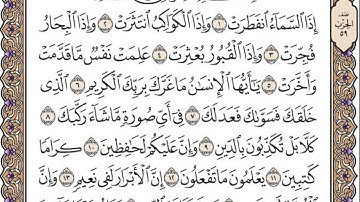 إِذَا ٱلسَّمَآءُ ٱنفَطَرَتْ ١ وَإِذَا ٱلْكَوَاكِبُ ٱنتَثَرَتْ ٢ وَإِذَا ٱلْبِحَارُ
فُجِّرَتْ ٣ وَإِذَا ٱلْقُبُورُ بُعْثِرَتْ ٤ عَلِمَتْ نَفْسٌ مَّا قَدَّمَتْ
وَأَخَّرَتْ ٥ يَـٰٓأَيُّهَا ٱلْإِنسَـٰنُ مَا غَرَّكَ بِرَبِّكَ ٱلْكَرِيمِ ٦ ٱلَّذِى
خَلَقَكَ فَسَوَّىٰكَ فَعَدَلَكَ ٧ فِىٓ أَىِّ صُورَةٍ مَّا شَآءَ رَكَّبَكَ ٨
كَلَّا بَلْ تُكَذِّبُونَ بِٱلدِّينِ ٩ وَإِنَّ عَلَيْكُمْ لَحَـٰفِظِينَ ١٠ كِرَامًا
كَـٰتِبِينَ ١١ يَعْلَمُونَ مَا تَفْعَلُونَ ١٢ إِنَّ ٱلْأَبْرَارَ لَفِى نَعِيمٍ ١٣ وَإِنَّ
الحزب
٥٩